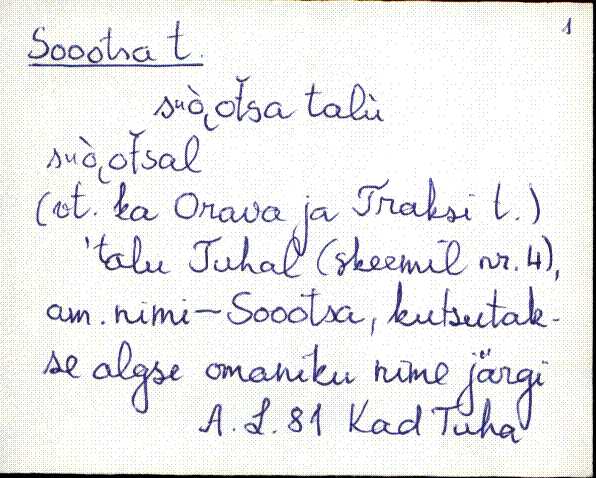 1
Soootsa t.
suò̭otsa talù
suò̭otsal
(vt. ka Orava ja Traksi t.)
'talu Tuhal (skeemil nr. 4),
am. nimi – Soootsa, kutsutak-
se algse omaniku nime järgi
A. L. 81 Kad Tuha